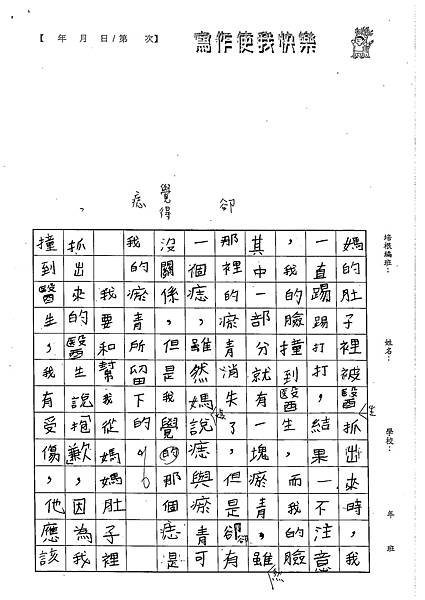 【　年　月　日/第　次】
寫作使我快樂
培根編班：
姓名：
學校：
年　班
卻
覺得
痣
，
媽的肚子裡被醫生抓出來時，我
一直踢踢打打，結果一不注意
，我的臉撞到醫生，而我的臉
其中一部分就有一塊瘀青，雖然
那裡的瘀青消失了，但是卻有
一個痣，雖然媽說痣與瘀青可
沒關係，但是我覺的那個痣是
我的瘀青所留下的。
我要和幫我從媽媽肚子裡
抓出來的醫生說抱歉，因為我
撞到醫生，我有受傷，他應該